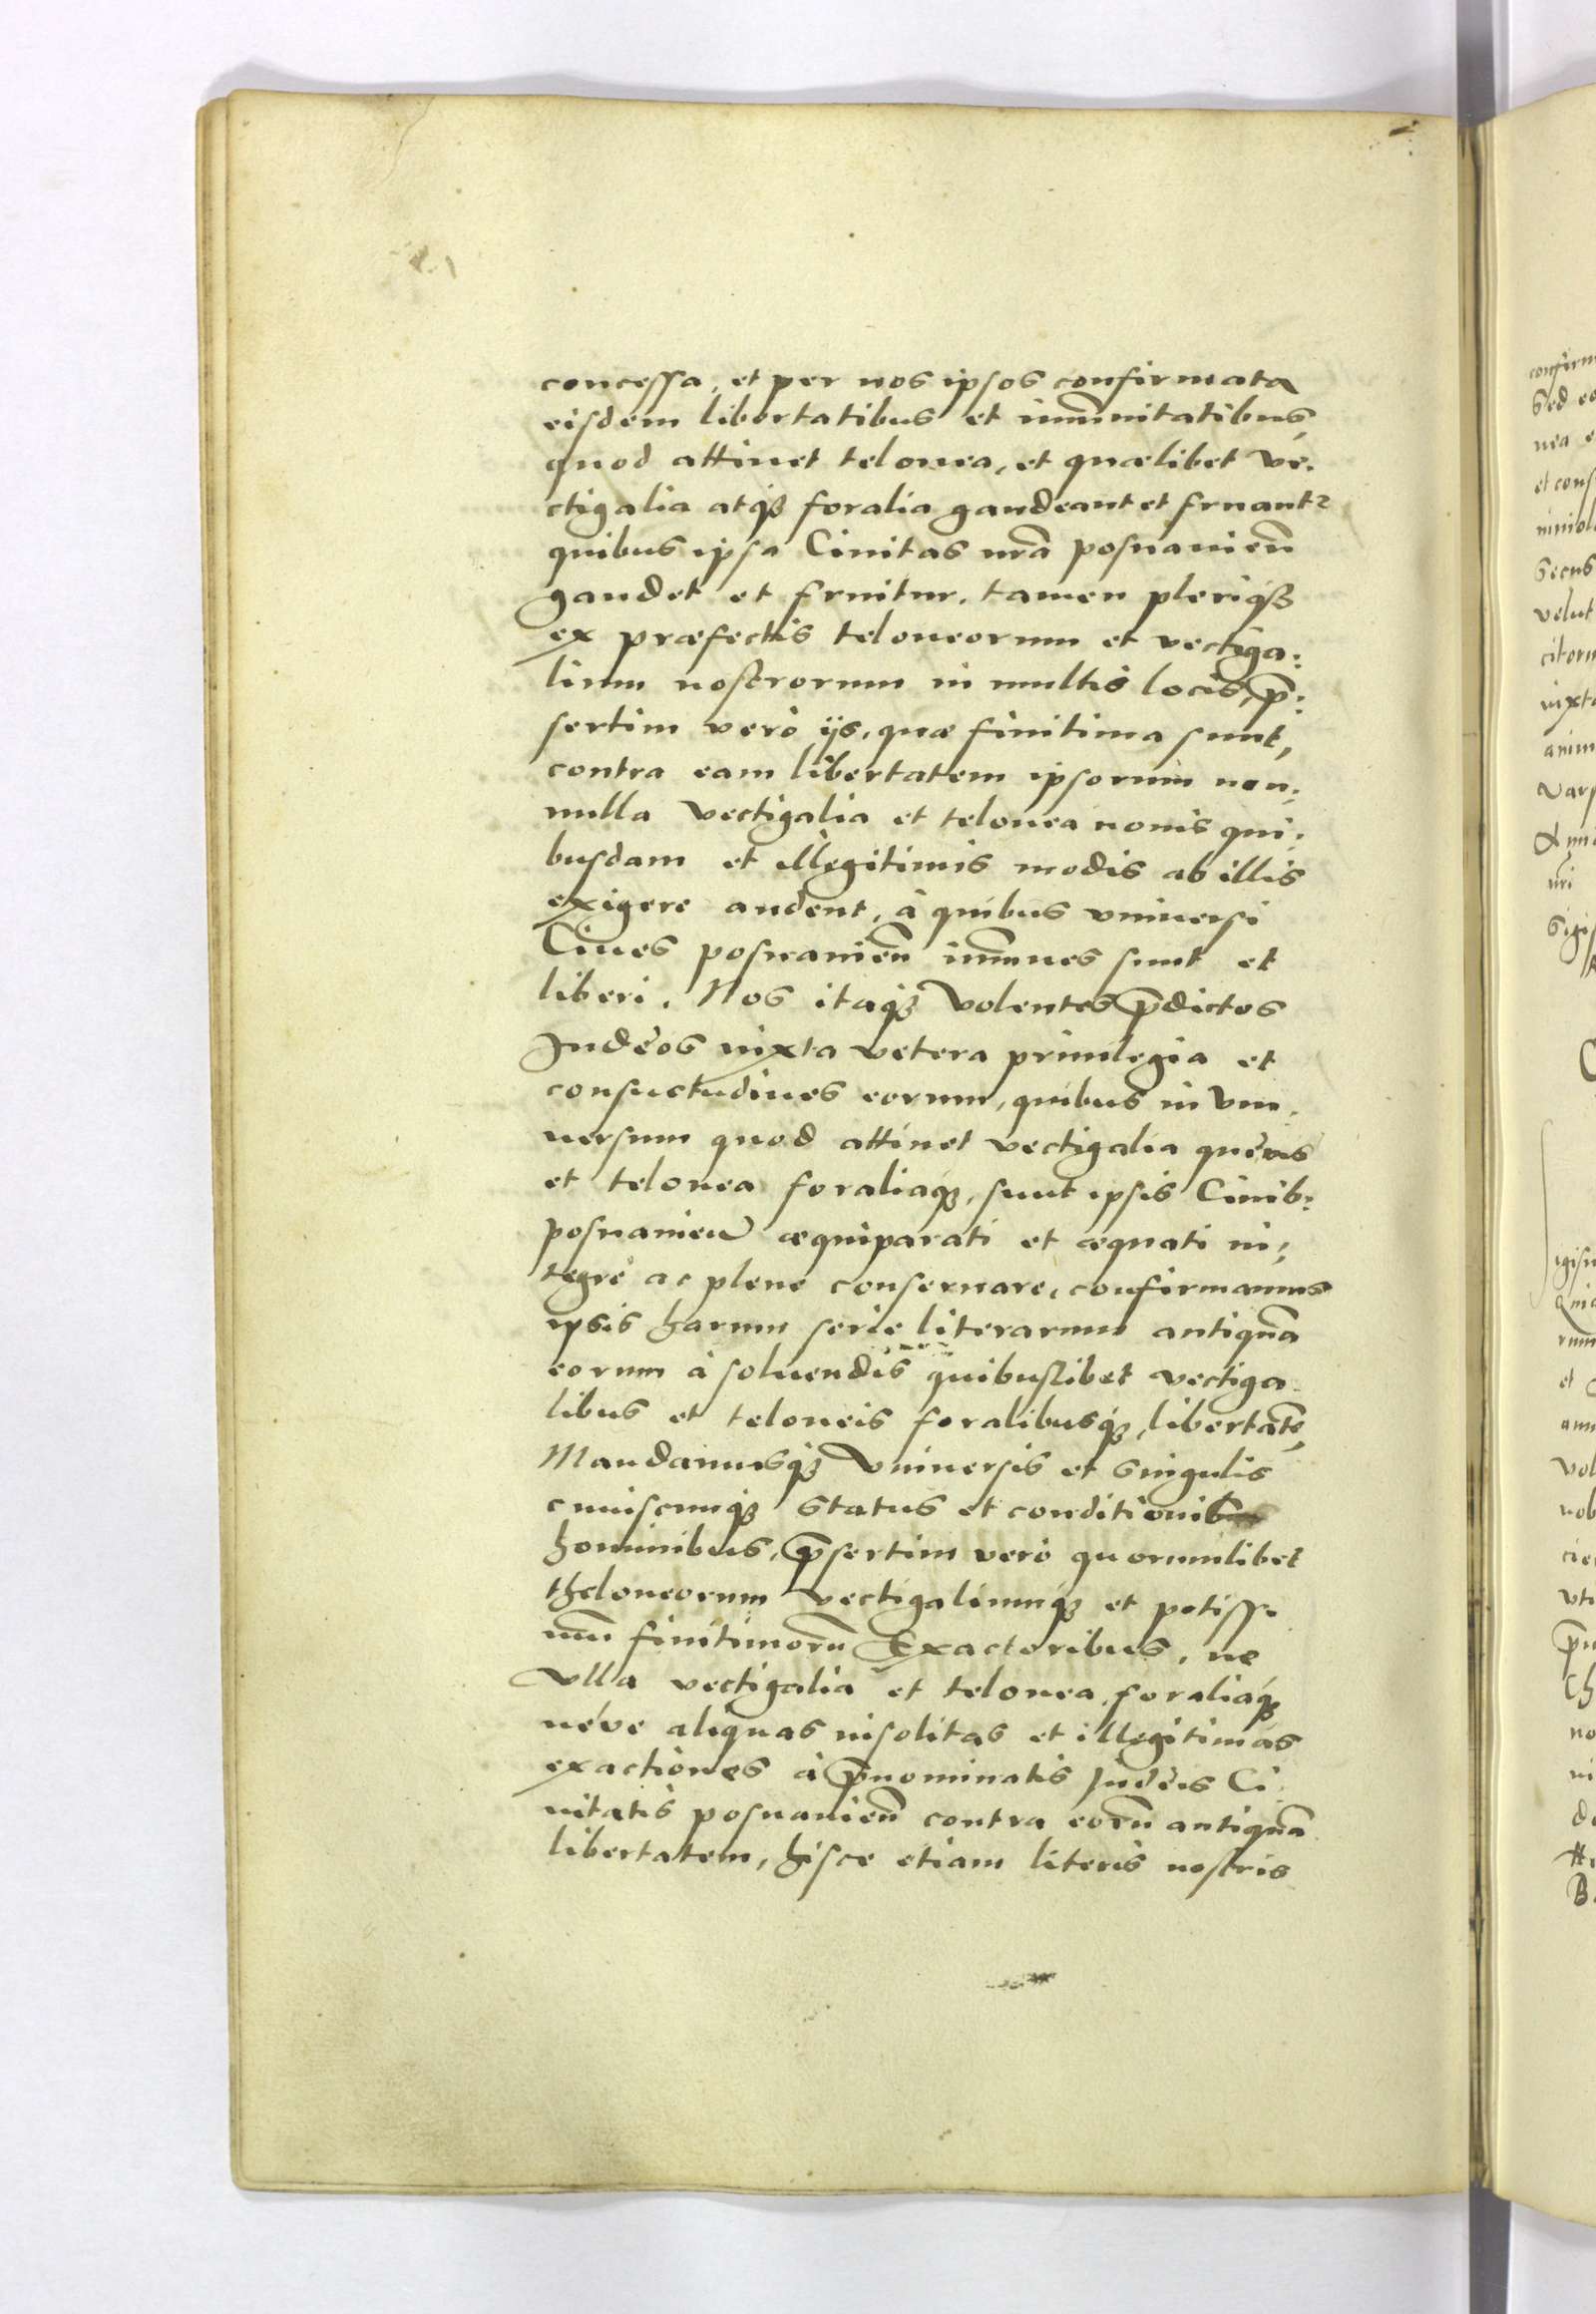 concessa, et per nos ipsos confirmata
eisdem libertatibus et im̃unitatibus,
quod attinet telonea, et quælibet ve-
ctigalia atq₃ foralia gaudeant et fruant2
quibus ipsa Ciuitas nrã posnanieñ
gaudet et fruitur. tamen pleriq₃
ex præfectis teloneorum et vectiga:
lium nostrorum in multis locis, p̃:
sertim verò ijs, quæ finitima sunt,
contra eam libertatem ipsorum non:
nulla vectigalia et telonea nouis qui:
busdam et illegitimis modis ab illis
exigere audent, à quibus vniuersi
Ciues posnanieñ im̃unes sunt et
liberi. Nos itaq₃ volentes p̃dictos
Judèos iuxta vetera priuilegia et
consuetudines eorum, quibus in vni-
uersum quod attinet vectigalia quèuis
et telonea foraliaq₃, sunt ipsis Ciuib:
posnanień æquiparati et æquati in:
tegrè ac plene conseruare, confirmamus
ipsis harum serie literarum antiquã
eorum à soluendis quibuslibet vectiga-
libus et teloneis foralibusq₃, libertatẽ,
Mandamusq₃ vniuersis et singulis
cuiuscunq₃ status et conditionibus
hominibus, p̃sertim verò quorumlibet
theloneorum vectigaliumq₃ et potissi-
mũ finitimorũ Exactoribus, ne
vlla vectigalia et telonea foraliaq₃
néve aliquas insolitas et illegitimas
exactiones à p̃nominatis Judèis Ci-
uitatis posnanieñ contra eorũ antiquã
libertatem, hisce etiam literis nostris